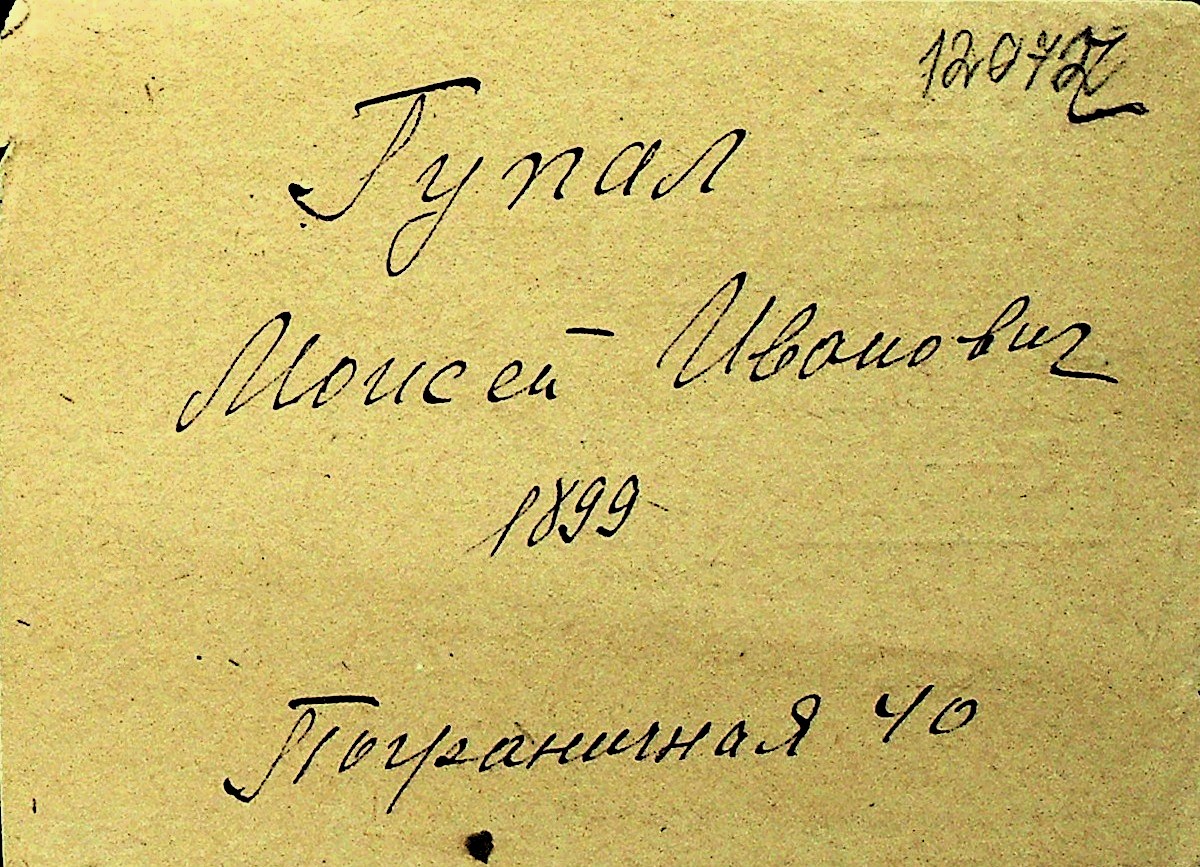 Гупал
Моисей Иванович
1899
Пограничная 40